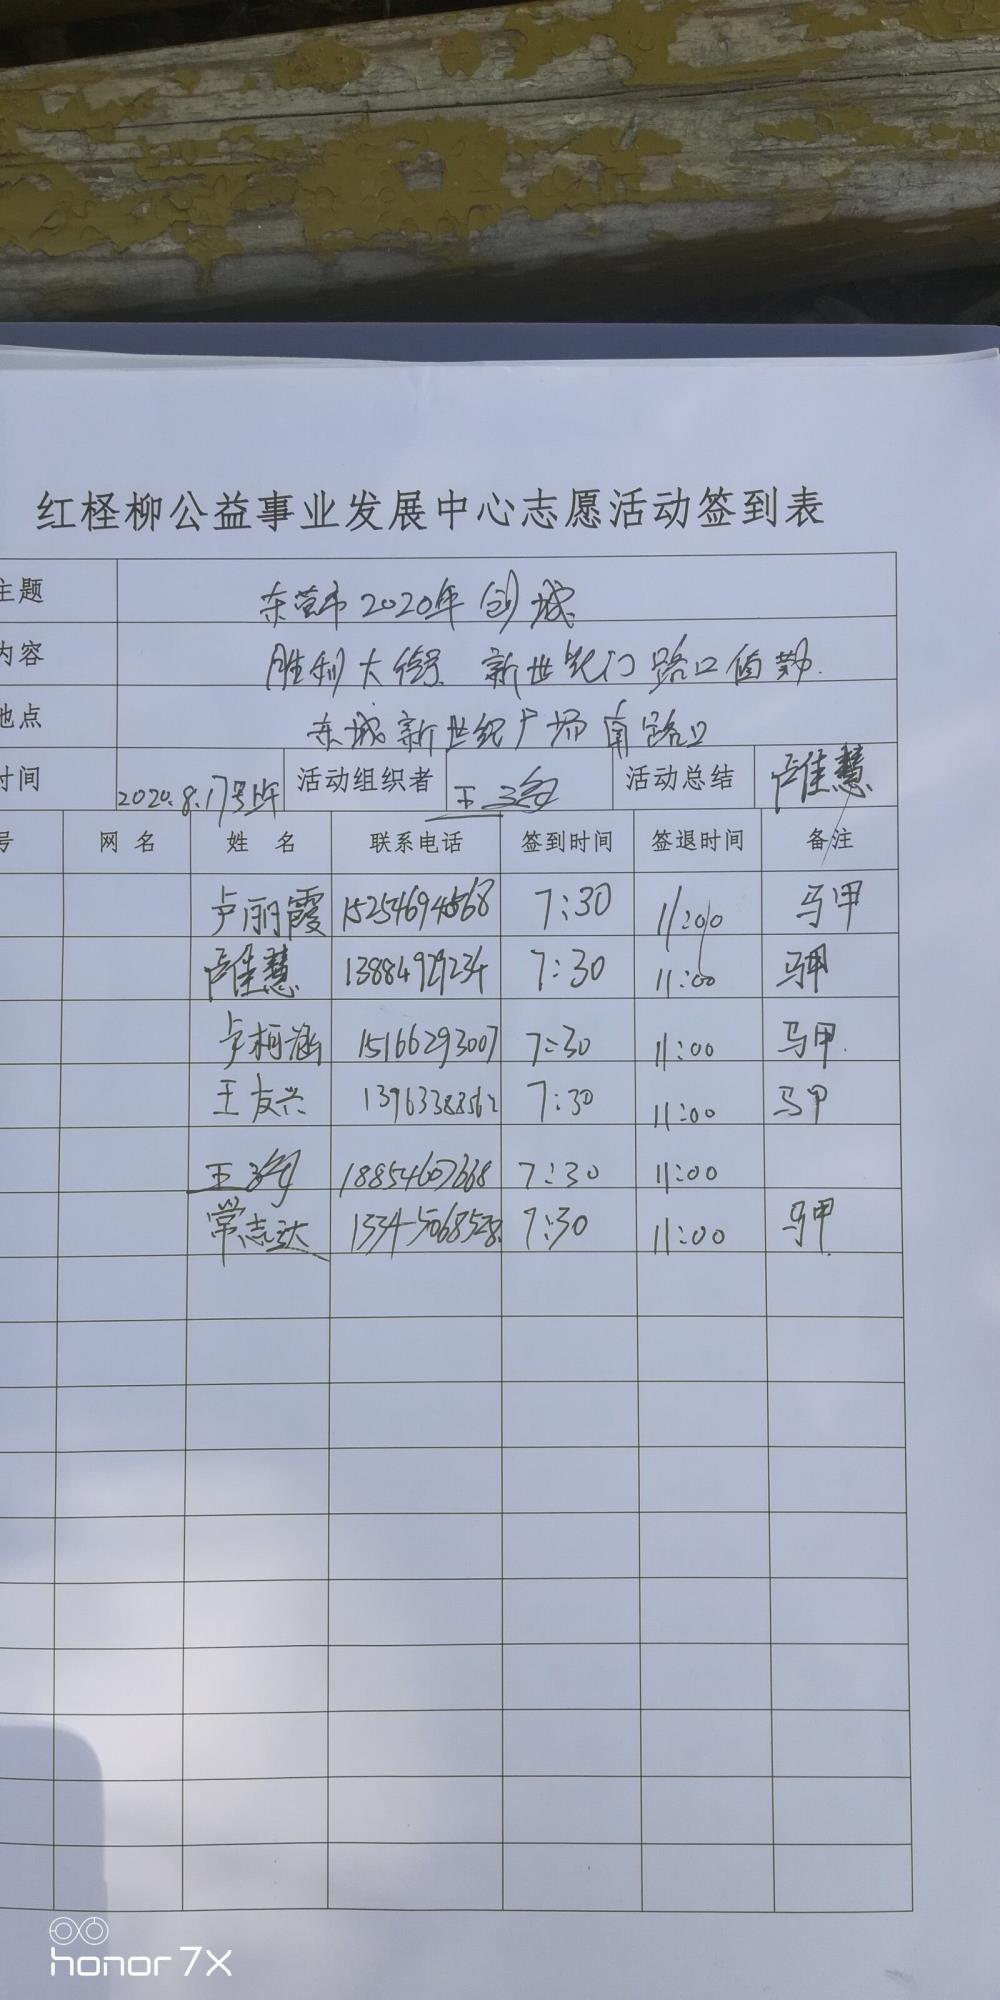 红柽柳公益事业发展中心志愿活动签到表
主题 东营市2020年创城
内容 胜利大街 新世纪门路口值勤
地点 东城新世纪广场南路口
时间 2020.8.17号 活动组织者 王 活动总结 卢佳慧
号 网名 姓名 联系电话 签到时间 签退时间 备注
卢丽霞 15254694568 7:30 11:00 马甲
卢佳慧 13884929234 7:30 11:00 马甲
卢柯涵 15166293007 7:30 11:00 马甲
王友兴 13963388562 7:30 11:00 马甲
王 18854607668 7:30 11:00
常志达 13345068528 7:30 11:00 马甲
honor 7X